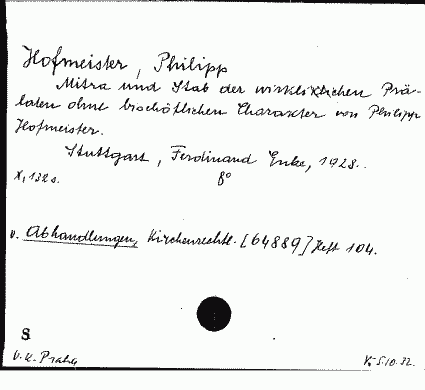 Hofmeister, Philipp
Mitra und Stab der wirklichen Prä-
laten ohne bischöflichen Charakter von Philipp
Hofmeister.
Stuttgart, Ferdinand Enke, 1928.
X, 132 s. 8°
v. Abhandlungen, Kirchenrechtl. [64889] Heft 104.
S
V. K. Praha 5.10.32.